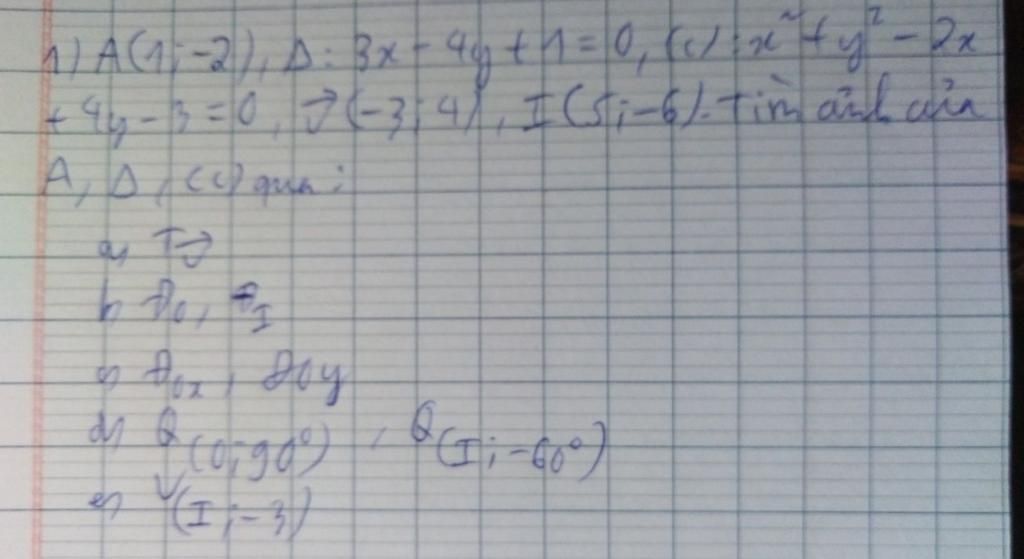 1) A(1;-2), Δ: 3x - 4y + 1 = 0, (C): x² + y² - 2x
+ 4y - 3 = 0, v⃗(-3; 4), I(5;-6). Tìm ảnh của
A, Δ, (C) qua:
a) Tv⃗
b) Đo, ĐI
c) Đox, Đoy
d) Q(O;90°), Q(I;-60°)
e) V(I;-3)